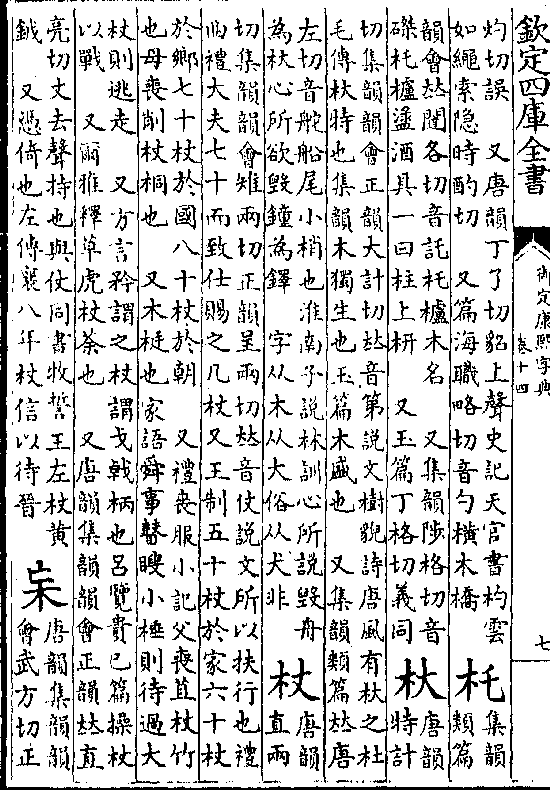 欽定四庫全書
御定康熙字典
卷十四
七
灼切誤　又唐韻丁了切貂上聲史記天官書杓雲
如繩索隱時酌切　又篇海職略切音勺橫木橋
杔
集韻
類篇
韻會𠀤闥各切音託杔櫨木名　又集韻陟格切音
磔杔櫨盪酒具一曰柱上枅　又玉篇丁格切義同
杕
唐韻
特計
切集韻韻會正韻大計切𠀤音第說文樹貌詩唐風有杕之杜
毛傳杕特也集韻木獨生也玉篇木盛也　又集韻類篇𠀤唐
左切音舵船尾小梢也淮南子說林訓心所說毀舟
為杕心所欲毀鐘為鐸　字从木从大俗从犬非
杖
唐韻
直兩
切集韻韻會雉兩切正韻呈兩切𠀤音仗說文所以扶行也禮
曲禮大夫七十而致仕賜之几杖又王制五十杖於家六十杖
於鄉七十杖於國八十杖於朝　又禮喪服小記父喪苴杖竹
也母喪削杖桐也　又木梃也家語舜事瞽瞍小棰則待過大
杖則逃走　又方言矜謂之杖謂戈戟柄也呂覽貴已篇操杖
以戰　又爾雅釋草虎杖荼也　又唐韻集韻韻會正韻𠀤直
亮切丈去聲持也與仗同書牧誓王左杖黃
鉞　又憑倚也左傳襄八年杖信以待晉
杗
唐韻集韻韻
會武方切正